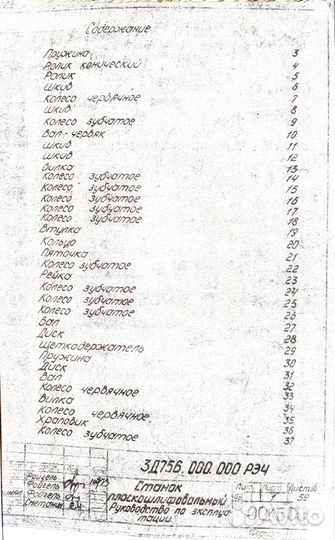 Содержание
Пружина 3
Ролик конический 4
Ролик 5
Шкив 6
Колесо червячное 7
Шкив 8
Колесо зубчатое 9
Вал-червяк 10
Шкив 11
Шкив 12
Вилка 13
Колесо зубчатое 14
Колесо зубчатое 15
Колесо зубчатое 16
Колесо зубчатое 17
Колесо зубчатое 18
Втулка 19
Кольцо 20
Пяточка 21
Колесо зубчатое 22
Рейка 23
Колесо зубчатое 24
Колесо зубчатое 25
Колесо зубчатое 26
Вал 27
Диск 28
Щеткодержатель 29
Пружина 30
Диск 31
Вал 32
Колесо червячное 33
Вилка 34
Колесо червячное 35
Храповик 36
Колесо зубчатое 37
3Д756.000.000 РЭ4
Станок
плоскошлифовальный
Руководство по эксплуа-
тации.
Лит. Лист Листов
59
Avito